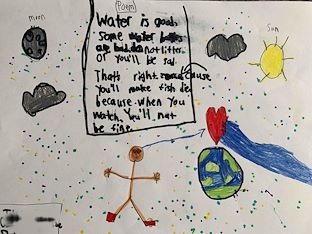 moon
Poem
Sun
Water is good
some water bottles
are bad. do not litter
or you'll be sad.
That's right cause
you'll make fish die
because when you
watch. You'll not
be fine.